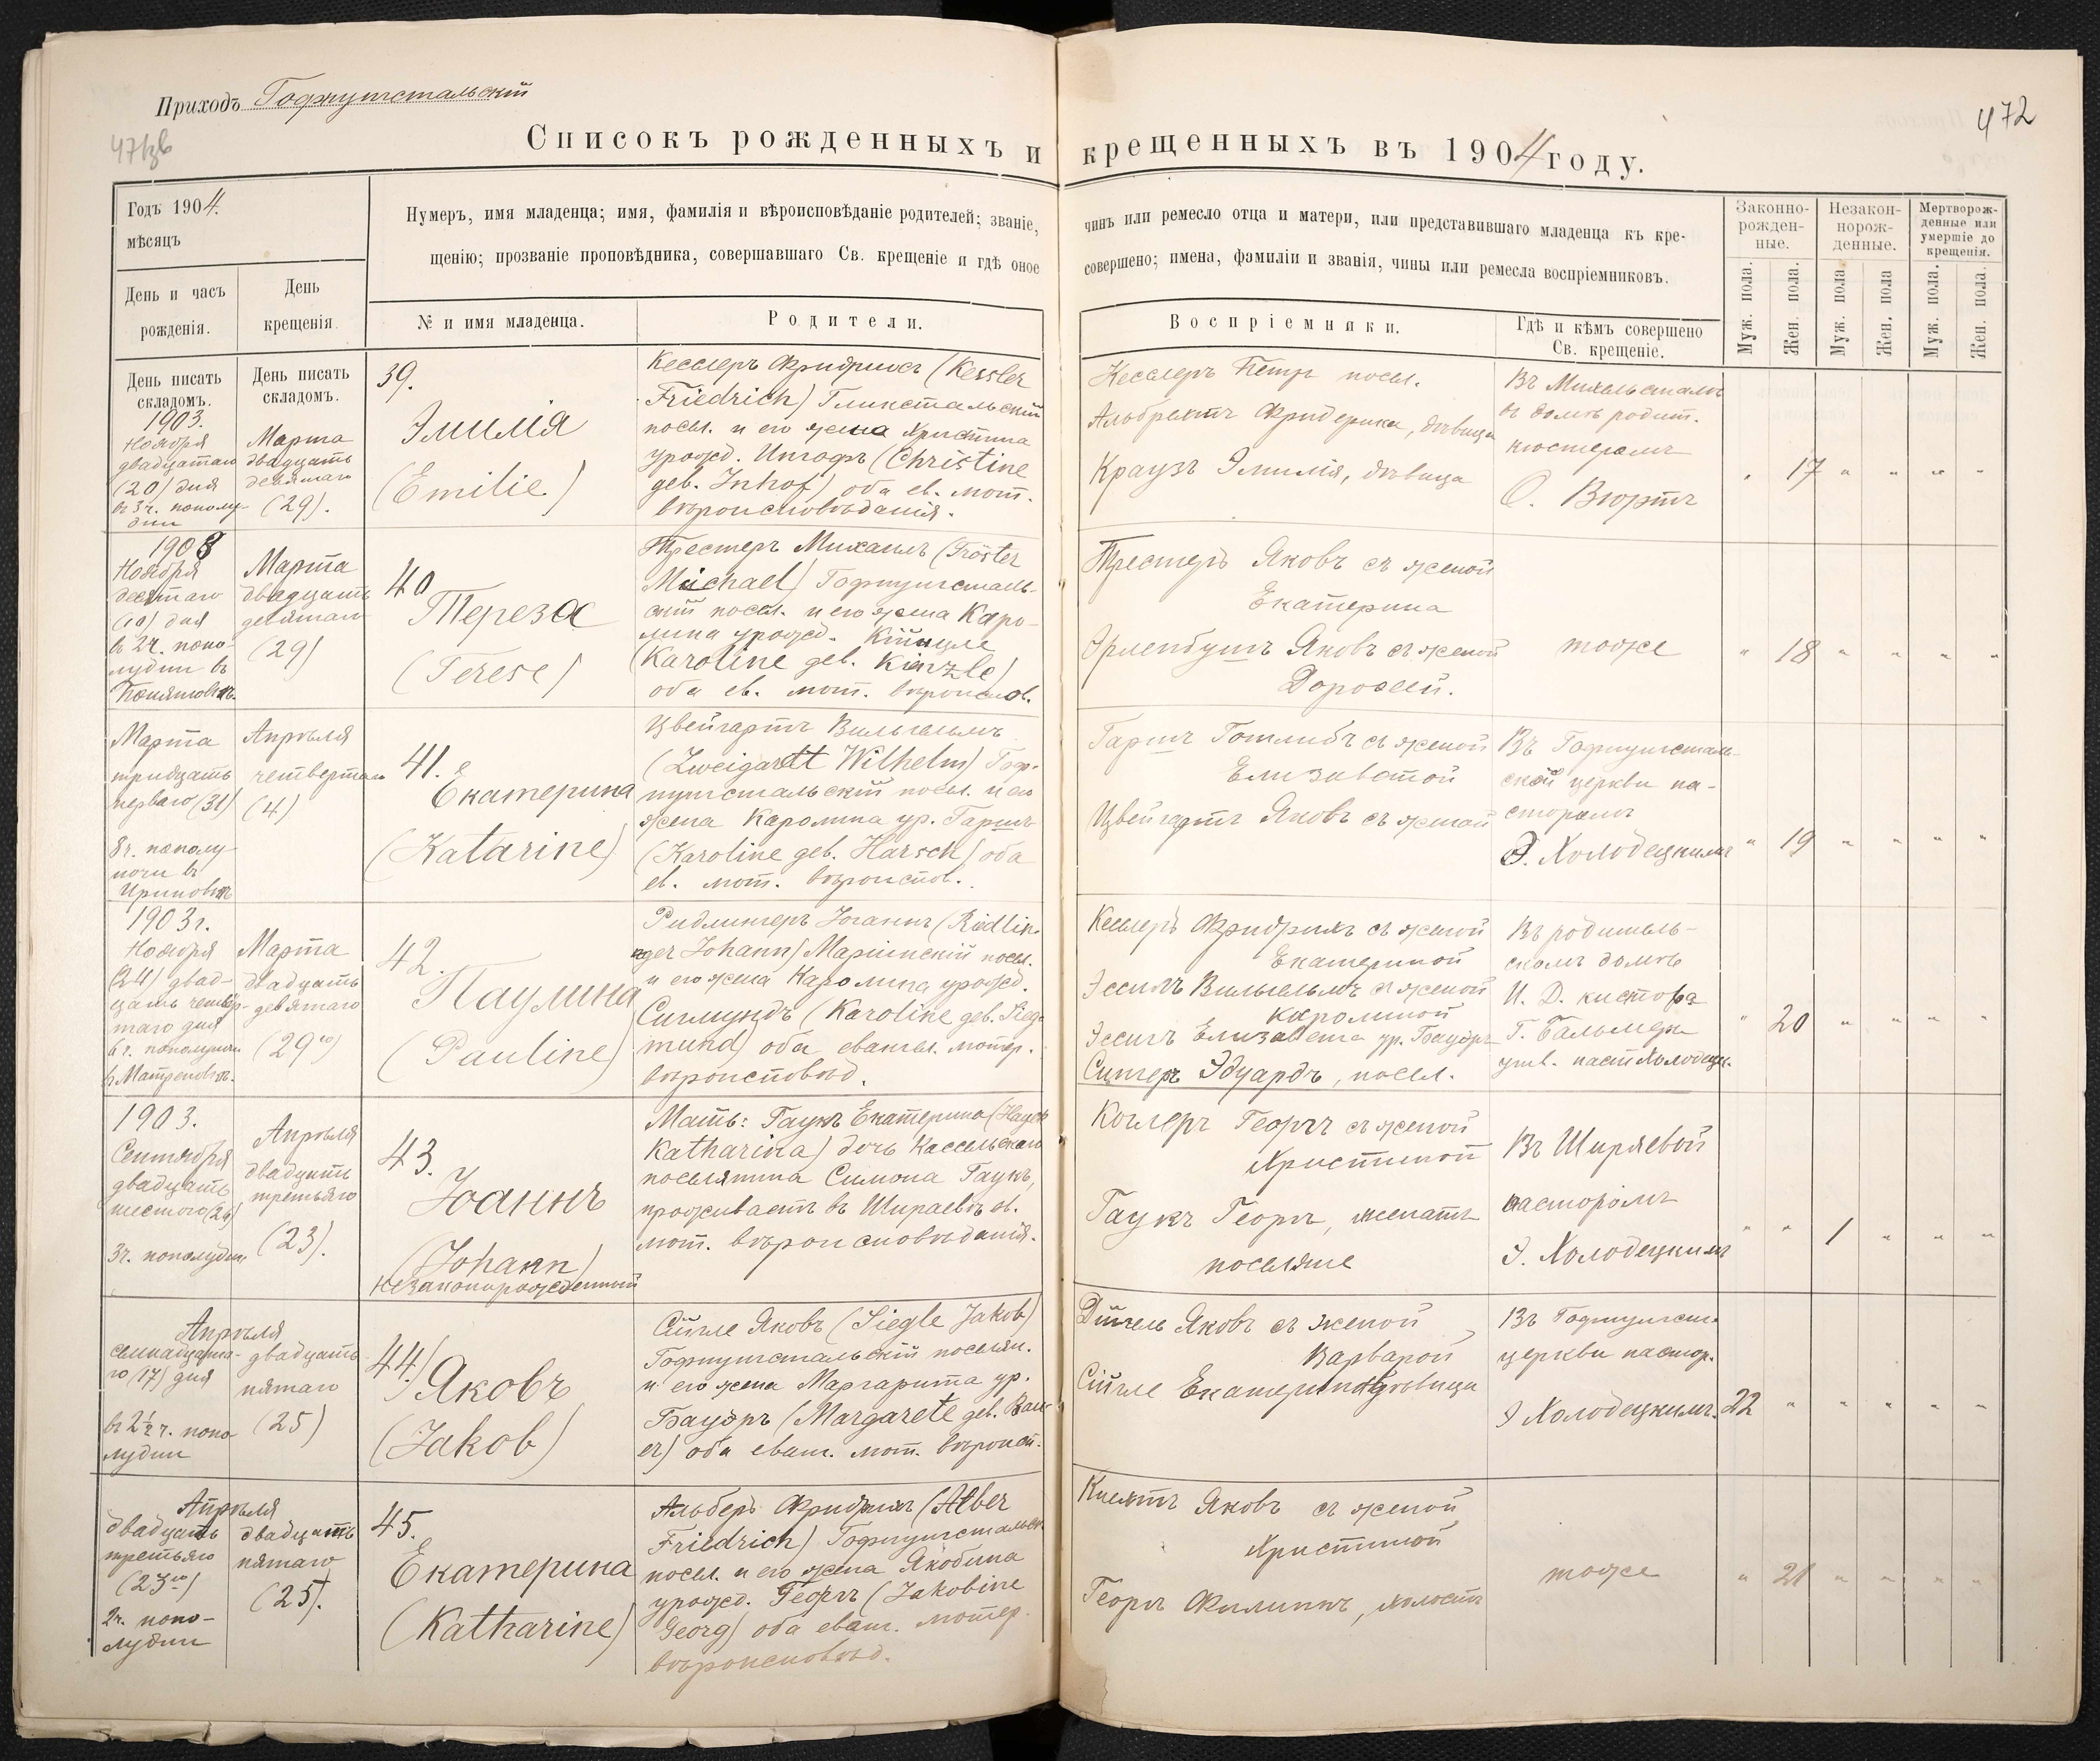 Приходъ Гофнунгстальскій
471об
472
Списокъ рожденныхъ и крещенныхъ въ 1904 году.
Годъ 1904.
мѣсяцъ
День и часъ
рожденія.
День
крещенія.
Нумеръ, имя младенца; имя, фамилія и вѣроисповѣданіе родителей; званіе, чинъ или ремесло отца и матери, или представившаго младенца къ кре-
щенію; прозваніе проповѣдника, совершавшаго Св. крещеніе и гдѣ оное совершено; имена, фэмиліи и званія, чины или ремесла воспріемниковъ.
№ и имя младенца.
Родители.
Воспріемники.
Гдѣ и кѣмъ совершено
Св. крещеніе.
Законно-
рожден-
ные.
Незакон-
норож-
денные.
Мертворож-
денные или
умершіе до
крещенія.
Муж. пола.
Жен. пола.
Муж. пола
Жен. пола
Муж. пола.
Жен. пола.
День писать
складомъ.
День писать
складомъ.
1903.
Ноября
двадцатаго
(20) дня
въ 3 ч. пополу-
дни
Марта
двадцать
девятаго
(29).
39.
Эмилія
(Emilie)
Кесслеръ Фридрихъ (Kessler
Friedrich) Гликстальскій
посел. и его жена Христина
урожд. Ингофъ (Christine
geb. Inhof) оба ев. лют.
вѣроисповѣданія.
Кесслеръ Петръ посел.
Альбрехтъ Фридерика, дѣвица
Краузъ Эмилія, дѣвица
Въ Михельсталѣ
въ домѣ родит.
кюстеромъ
О. Вюртъ
17
1903
Ноября
десятаго
(10) дня
въ 2 ч. попо-
лудни въ
Понятовкѣ.
Марта
двадцать
девятаго
(29)
40
Тереза
(Terese)
Трестеръ Михаилъ (Tröster
Michael) Гофнунгсталь-
скій посел. и его жена Каро-
лина урожд. Кинцле
(Karoline geb. Kinzle)
оба ев. лют. вѣроиспов.
Трестеръ Яковъ съ женой
Екатерина
Эрленбушъ Яковъ съ женой
Доротеей.
тоже
18
Марта
тридцать
перваго (31)
8 ч. пополу
ночи въ
Ириновкѣ
Апрѣля
четвертаго
(4)
41.
Екатерина
(Katarine)
Цвейгартъ Вильгельмъ
(Zweigartt Wilhelm) Гоф-
нунгстальскій посел. и его
жена Каролина ур. Гаршъ
(Karoline geb. Harsch) оба
ев. лют. вѣроиспов.
Гаршъ Готлибъ съ женой
Елизаветой
Цвейгартъ Яковъ съ женой
Въ Гофнунгсталь-
ской церкви па-
сторомъ
Э. Холодецкимъ
19
1903 г.
Ноября
(24) двад-
цать четвер-
таго дня
6 ч. пополудни
въ Матреновкѣ.
Марта
двадцать
девятаго
(29го)
42.
Паулина
(Pauline)
Ридлингеръ Іоганнъ (Riedlin-
ger Johann) Маріинскій посел.
и его жена Каролина урожд.
Сигмундъ (Karoline geb. Sieg-
mund) оба евангел. лютер.
вѣроисповѣд.
Кесслеръ Фридрихъ съ женой
Екатериной
Эссигъ Вильгельмъ съ женой
Каролиной
Эссигъ Елизавета ур. Бауэръ
Сингеръ Эдуардъ, посел.
Въ родитель-
скомъ домѣ
И. Д. кистора
Г. Бальмеръ
утв. паст Холодецк.
20
1903.
Сентября
двадцать
шестого (26)
3 ч. пополудни
Апрѣля
двадцать
третьяго
(23).
43.
Іоаннъ
(Johann)
незаконнорожденный
Мать: Гаукъ Екатерина (Hauck
Katharina) дочь Кассельскаго
поселянина Симона Гаукъ,
проживаетъ въ Ширяевѣ ев.
лют. вѣроисповѣданія.
Коглеръ Георгъ съ женой
Христиной
Гаукъ Георгъ, женатъ
поселяне
Въ Ширяевой
пасторомъ
Э. Холодецкимъ
1
Апрѣля
семнадцата-
го (17) дня
въ 2½ ч. попо-
лудни
двадцать
пятаго
(25)
44)
Яковъ
(Jakob)
Сигле Яковъ (Siegle Jakob)
Гофнунгстальскій поселян.
и его жена Маргарита ур.
Бауэръ (Margarete geb. Bau-
er) оба еванг. лют. вѣроисп.
Дингель Яковъ съ женой
Варварой
Сигле Екатерина, дѣвица
Въ Гофнунгст.
церкви пастор.
Э Холодецкимъ.
22
Апрѣля
двадцать
третьяго
(23го)
2 ч. попо-
лудни
двадцать
пятаго
(25).
45.
Екатерина
(Katharine)
Альберъ Фридрихъ (Alber
Friedrich) Гофнунгстальск
посел. и его жена Якобина
урожд. Георгъ (Jakobine
Georg) оба еванг. лютер.
вѣроисповѣд.
Яковъ съ женой
Христиной
Георгъ Филиппъ, холостъ
тоже
21